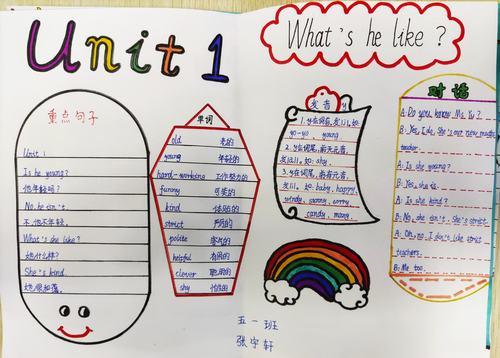 Unit 1
What's he like ?
重点句子
Unit 1
Is he young?
他年轻吗?
No, he isn't.
不,他不年轻。
What's she like?
她什么样?
She's kind.
她很和蔼。
单词
old 老的
young 年轻的
hard-working 工作努力的
funny 可笑的
kind 体贴的
strict 严厉的
polite 客气的
helpful 有用的
clever 聪明的
shy 怕羞的
发音 y
1. y在词首,发/j/,如
yo-yo, young
2. y在词尾,前无元音,
发/ai/,如: shy.
3. y在词尾,前有元音,
发/i/,如: baby, happy,
windy, sunny, sorry
candy, many.
对话
A: Do you know Mr. Yu?
B: Yes, I do. She's our new maths
teacher.
A: Is she young?
B: Yes, she is.
A: Is she kind?
B: No, she isn't. She's strict
A: Oh, no. I don't like strict
teachers.
B: Me too.
五一班
张宇轩